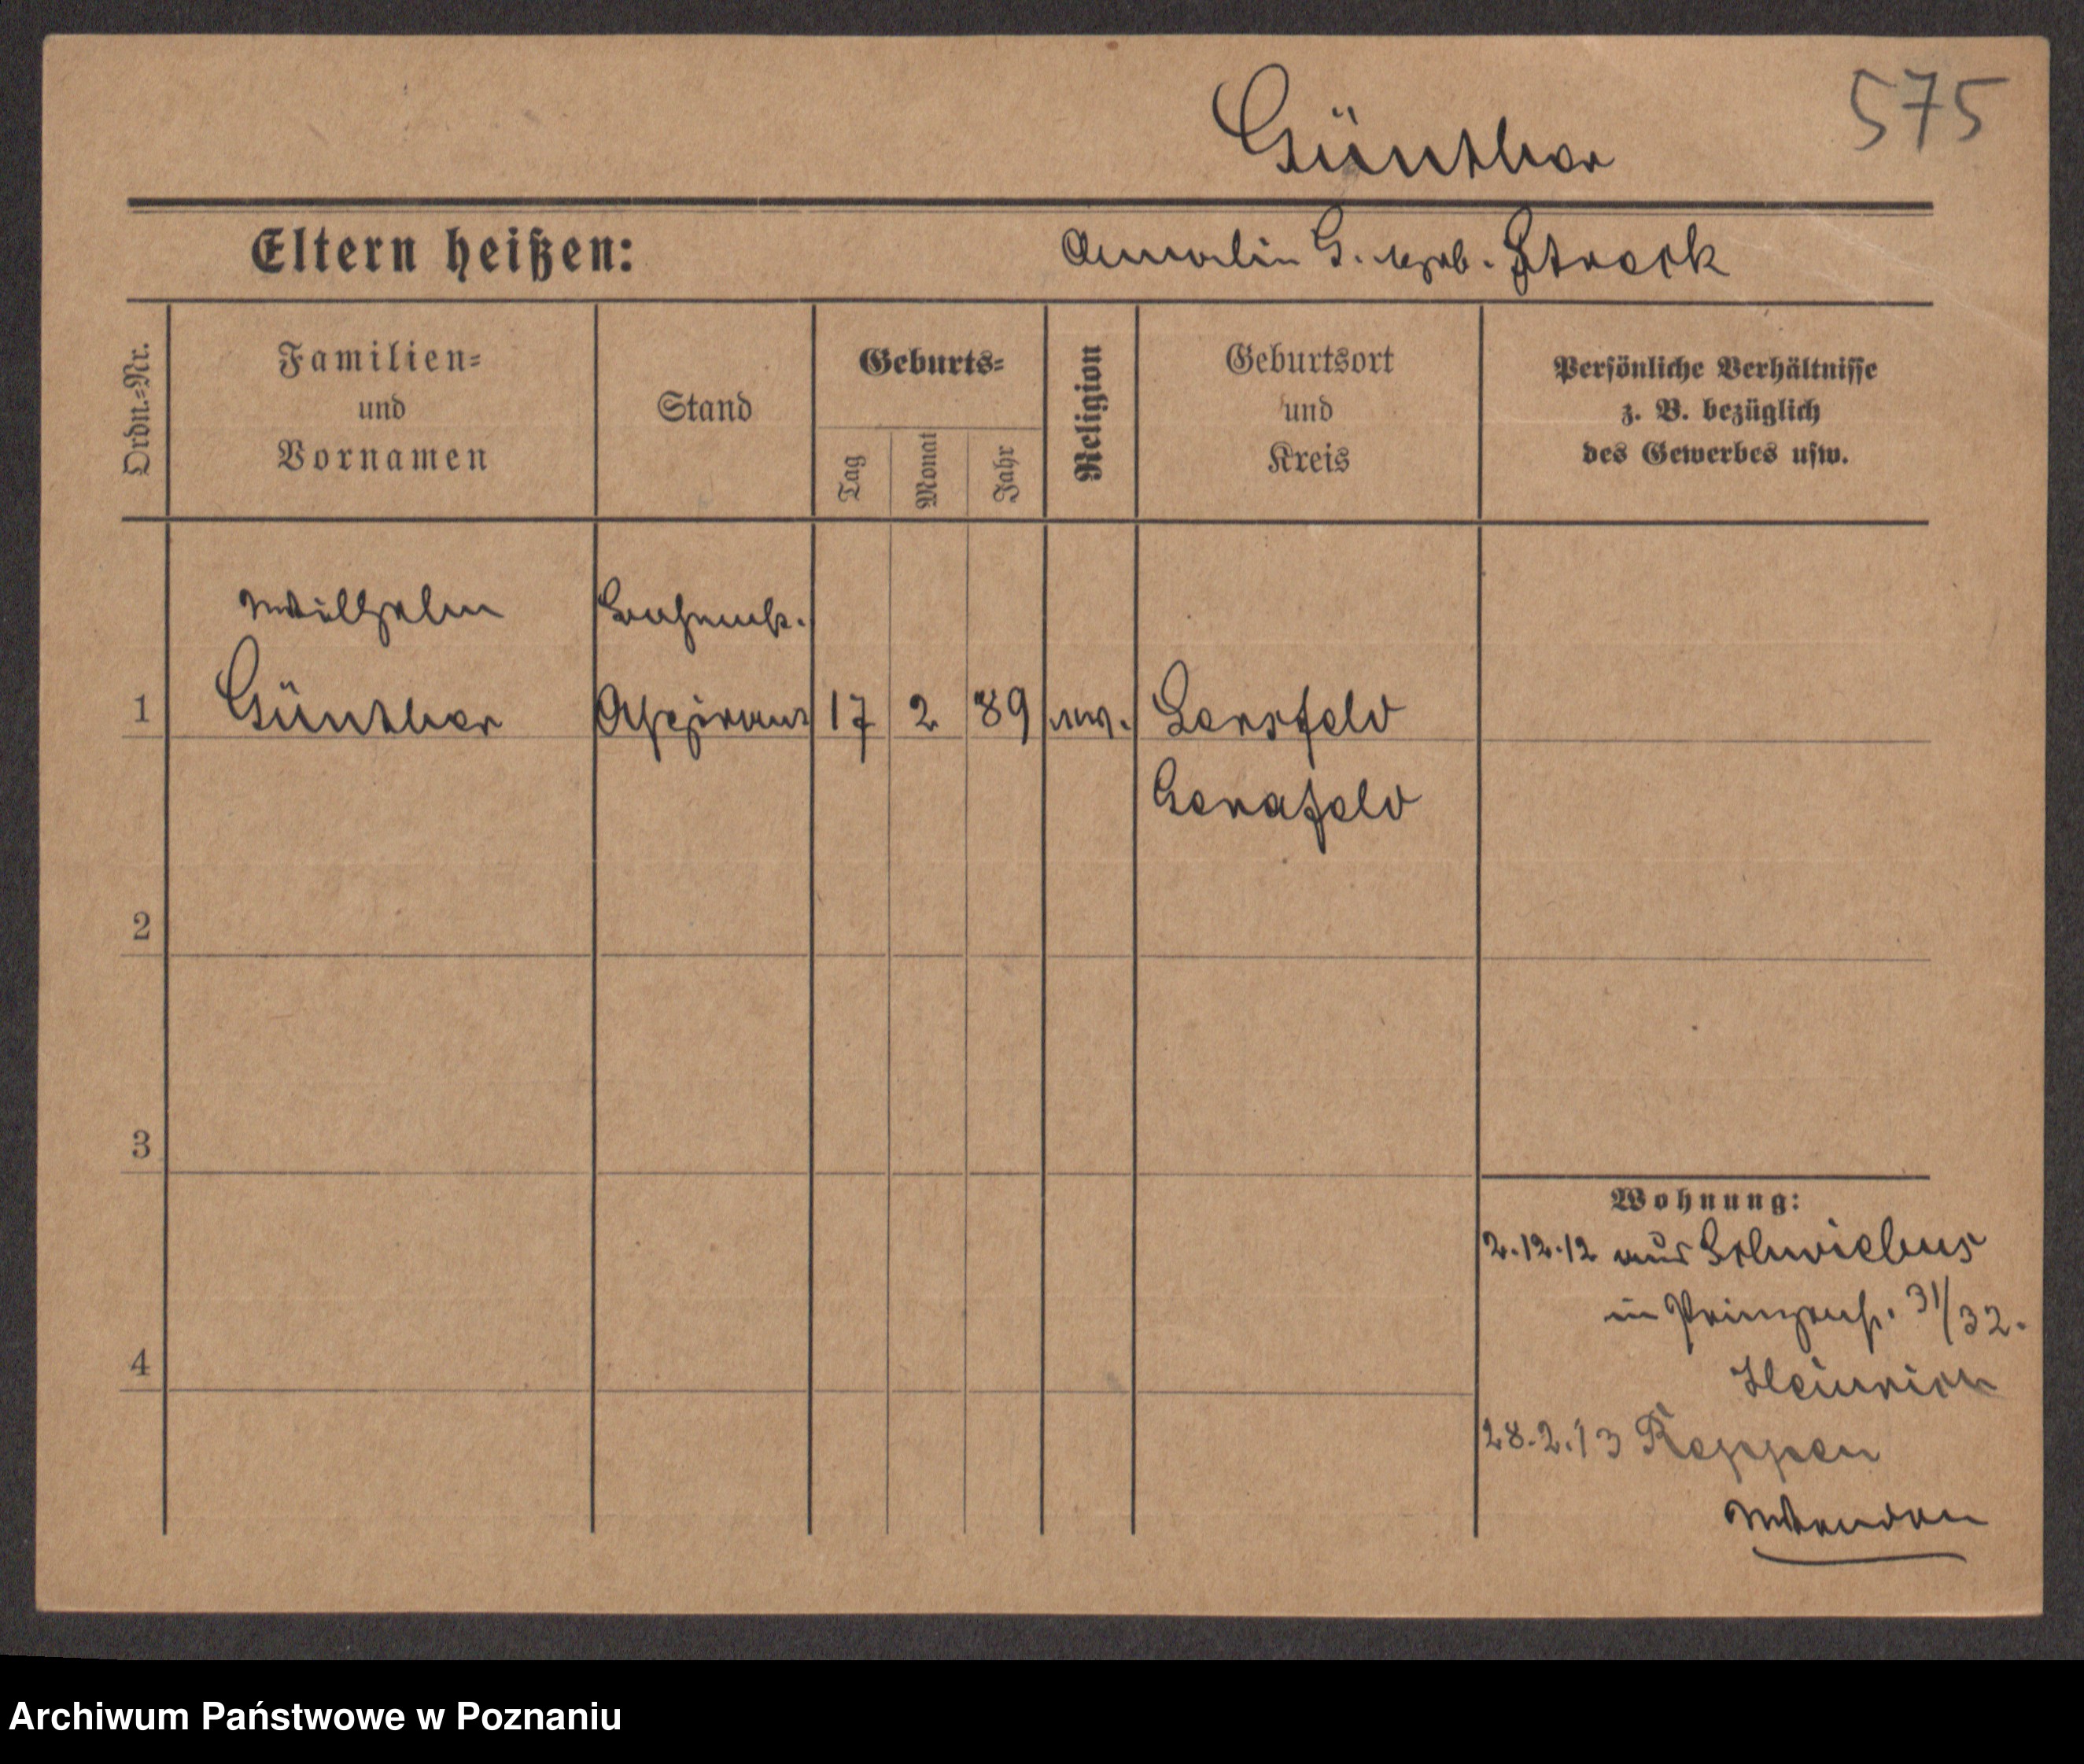 575
Günther
Eltern heißen: G. geb. Strack
Ordn.-Nr.
Familien-
und
Vornamen
Stand
Geburts-
Tag
Monat
Jahr
Religion
Geburtsort
und
Kreis
Persönliche Verhältnisse
z. B. bezüglich
des Gewerbes usw.
Wilhelm
1 Günther Aspirant 17 2 89 ev.
2
3
4
Wohnung:
2.12.12 aus Schwiebus
in Prinzenstr. 31/32.
Heinrich
28.2.13 Reppen
Archiwum Państwowe w Poznaniu